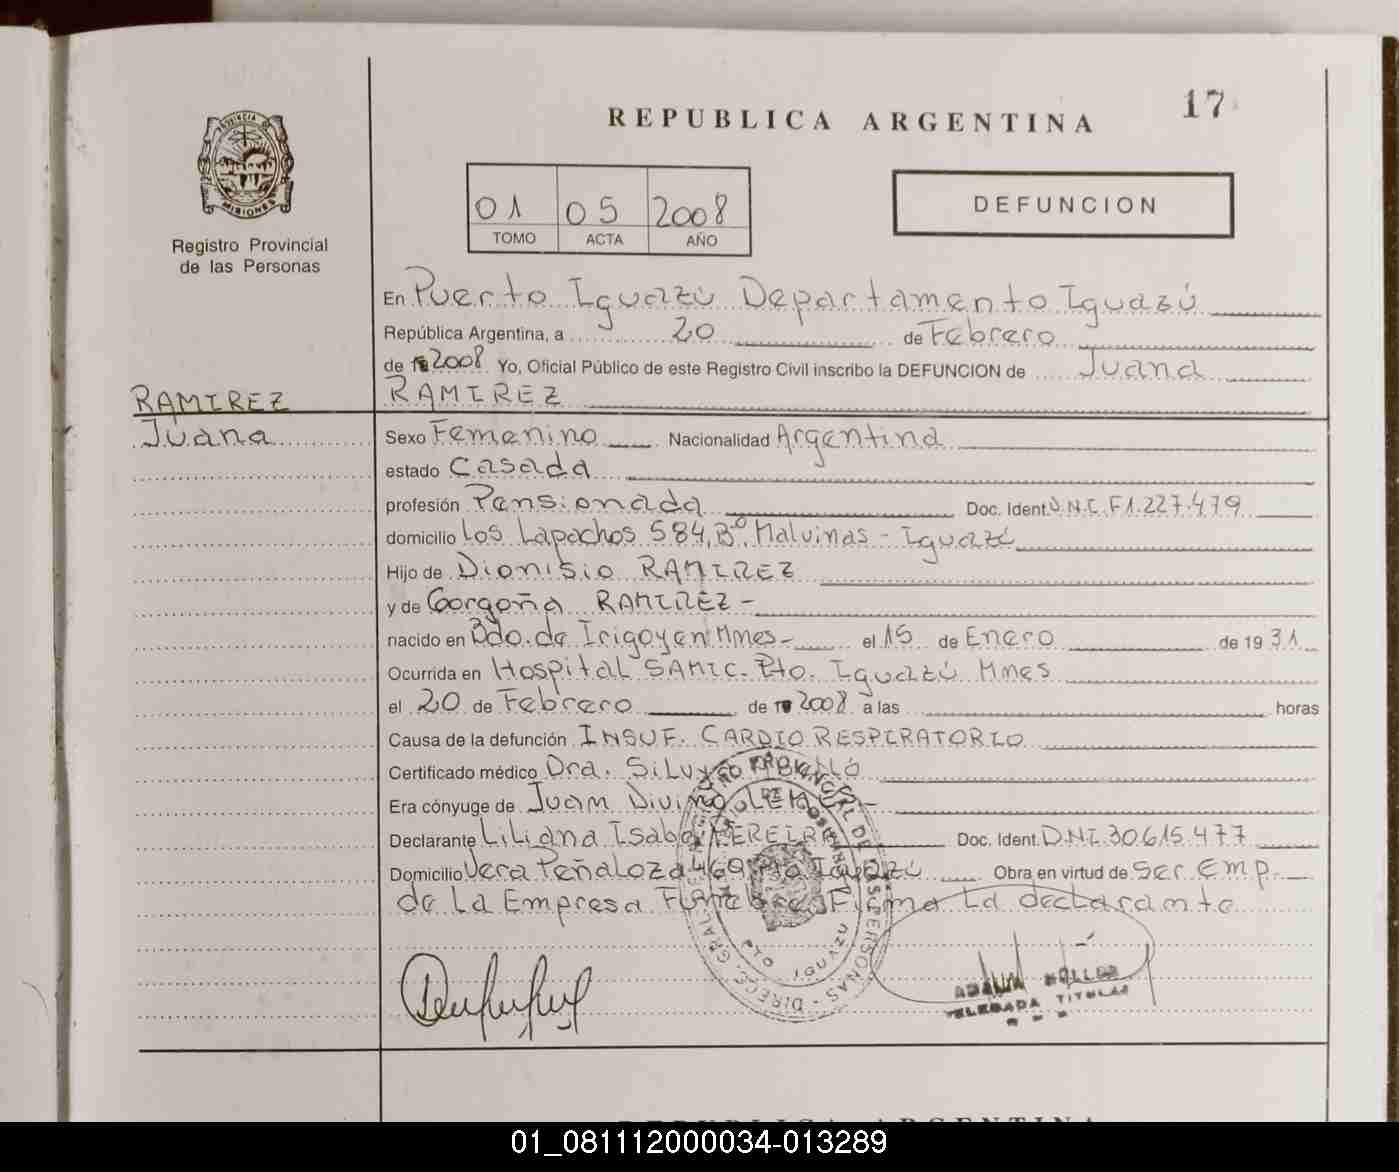 17
REPUBLICA ARGENTINA
PROVINCIA DE
MISIONES
Registro Provincial
de las Personas
01 05 2008
TOMO ACTA AÑO
DEFUNCION
En Puerto Iguazú Departamento Iguazú
República Argentina, a 20 de Febrero
de 2008 Yo, Oficial Público de este Registro Civil inscribo la DEFUNCION de Juana
RAMIREZ
RAMIREZ
Juana
Sexo Femenino Nacionalidad Argentina
estado Casada
profesión Pensionada Doc. Ident. D.N.I. F1.227.479
domicilio Los Lapachos 584, Bº. Malvinas - Iguazú
Hijo de Dionisio RAMIREZ
y de Gorgoña RAMIREZ -
nacido en Bdo. de Irigoyen Mnes - el 15 de Enero de 1931
Ocurrida en Hospital SAMIC. Pto. Iguazú Mnes
el 20 de Febrero de 2008 a las horas
Causa de la defunción INSUF. CARDIO RESPIRATORIO
Certificado médico Dra. Silvya
Era cónyuge de Juan Divino
Declarante Liliana Isabel PEREIRA Doc. Ident. D.N.I. 30.615.477
Domicilio Vera Peñaloza 469 Pto Iguazú Obra en virtud de Ser Emp.
de La Empresa Funebre Firma La declarante
DELEGADA TITULAR
REPUBLICA ARGENTINA
01_081112000034-013289